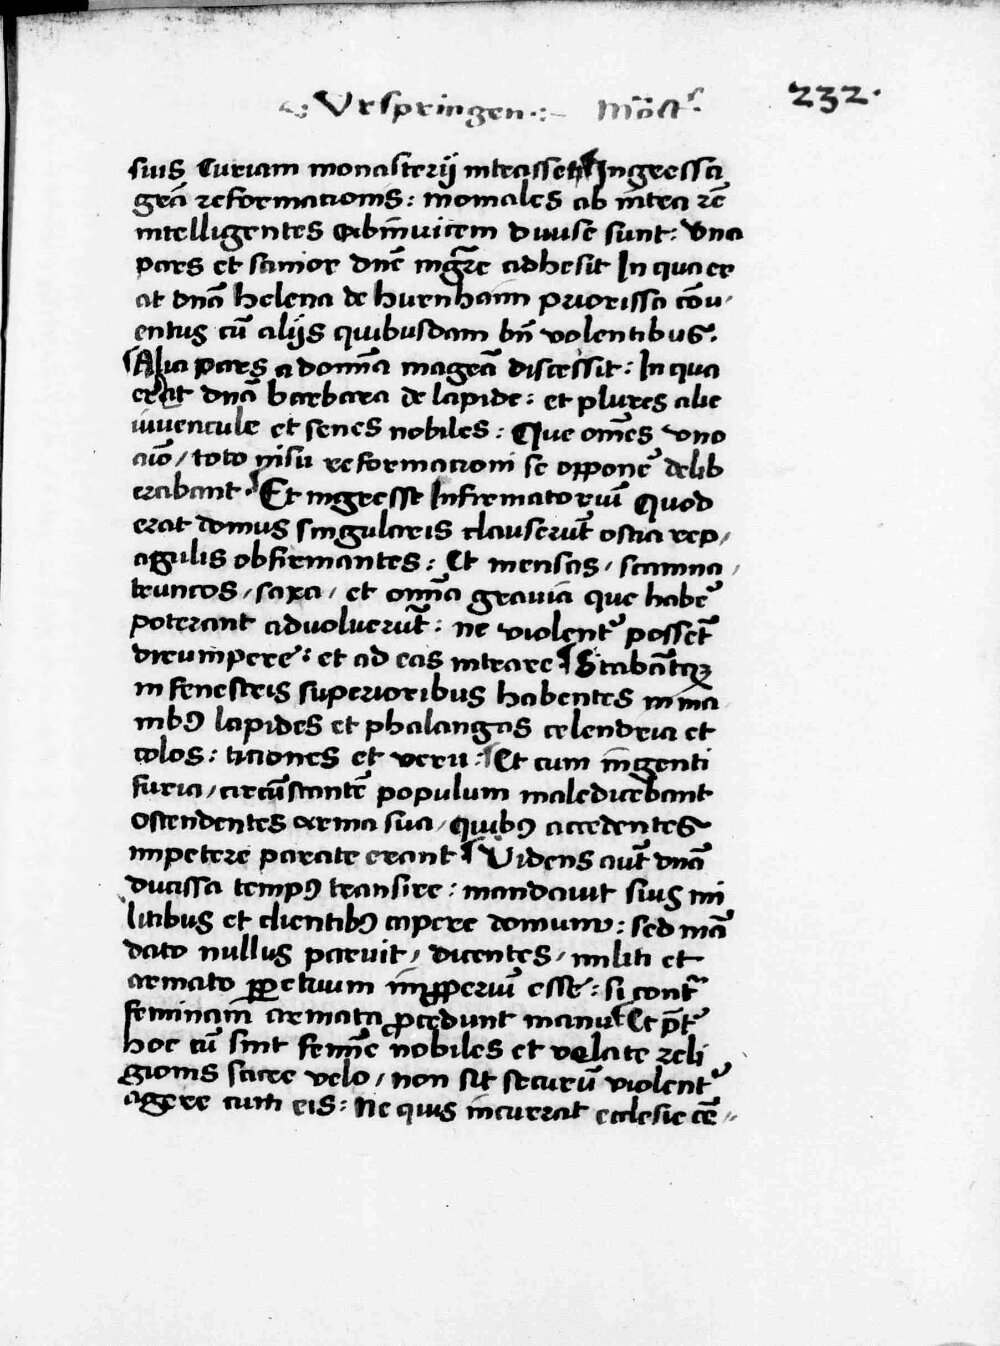 Vrspringen ·:~ Mo̅ast͛. 232.
suis Curiam monasterij intrasset. Ingressa
gr̅a reformationis: moniales ab intra re̅
intelligentes abinuicem diuise sunt: Vna
pars et sanior dn̅e mgr̅e adhesit In qua er
at dn̅a helena de hurnhaim priorissa co̅u-
entus cu̅ alijs quibusdam bn̅ volentibus.
Alia pars a domn̅a magr̅a discessit: In qua
erat dn̅a barbara de lapide: et plures alie
iuuencule et senes nobiles: Que om̅es vno
aı̅o / toto nisu reformationi se oppone͛ delib
erabant. Et ingresse Infirmatoriu̅ Quod
erat domus singularis clauseru̅t ostia rep/
agulis obfirmantes: Et mensas / scamna /
truncos / saxa / et omn̅ia grauia que habe͛
poterant aduolueru̅t: ne violent͛ posse̅t
dirumpere: et ad eas intrare. Staba̅tqꝫ
in fenestris superioribus habentes in ma
nibꝰ lapides et phalangas celendria et
colos: ticiones et veru: Et cum in̅genti
furia / circu̅stante̅ populum maledicebant
Ostendentes arma sua / quibꝰ accedentes
impetere parate erant. Videns aut̅ dn̅a
ducissa tempꝰ transire: mandauit suis mi
litibus et clientibꝰ capere domum: sed ma̅
dato nullus paruit / dicentes / militi et
armato ꝑpetuum imꝓperiu̅ esse: si contr̅
feminam̅ armata ꝓcedunt manu. Et p̅t͛
hoc cu̅ sint femı̅e nobiles et velate reli
gionis sacre velo / non sit securu̅ violent͛
agere cum eis: Ne quis incurrat ecclesie ce̅-